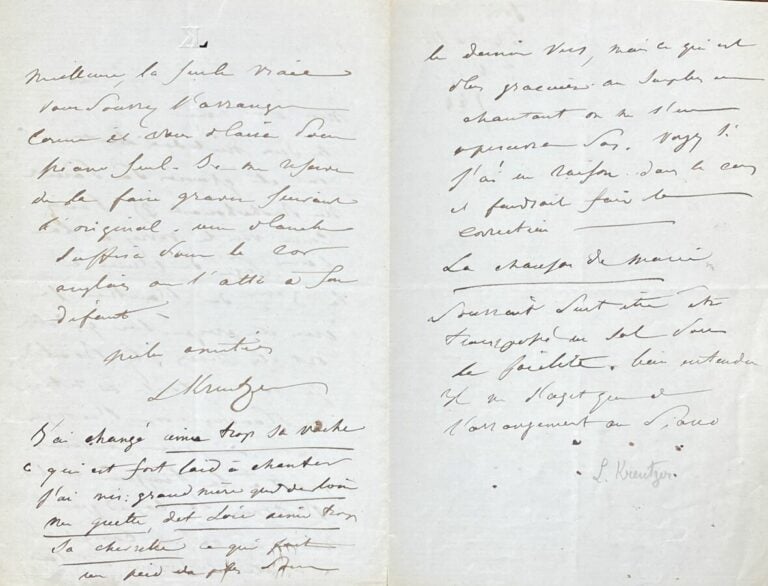 LK
meilleure, la seule vraie
vous pourrez l'arranger
comme il vous plaira pour
piano seul. Je me réserve
de la faire graver suivant
l'original. une planche
suffira pour le cor
anglais ou l'alto à son
défaut.
mille amitiés
L Kreutzer
J'ai changé aime trop sa vache
ce qui est fort laid a chanter
j'ai mis: grand mère qui de loin
me guette, dit Loïc aime trop
sa chevrette ce qui fait
un pied de plus dans
le dernier vers, mais ce qui est
plus gracieux au surplus en
chantant on ne s'en
apercevra pas. Voyez si
j'ai eu raison. dans le cas
il faudrait faire la
correction
La chanson de marie
pourrait peut être être
transposé en sol pour
la facilité. bien entendu
il ne s'agit que de
l'arrangement au Piano
L. Kreutzer.